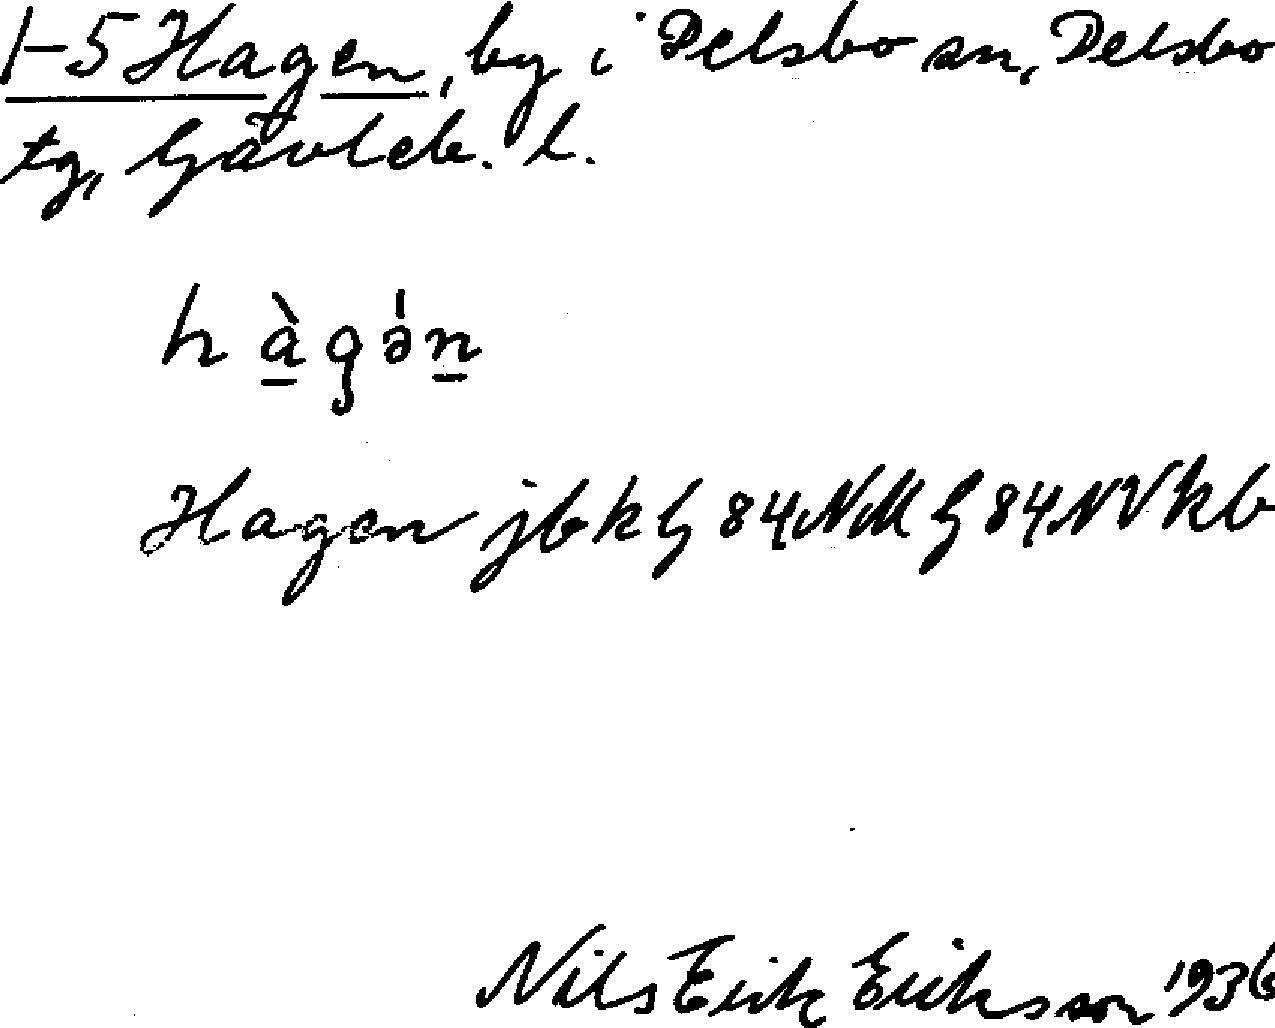 1-5 Hagen, by i Delsbo sn, Delsbo
tg, Gävleb. l.
hàgə́n
Hagen jbkG 84NM G 84NV kb
Nils Erik Eriksson 1936